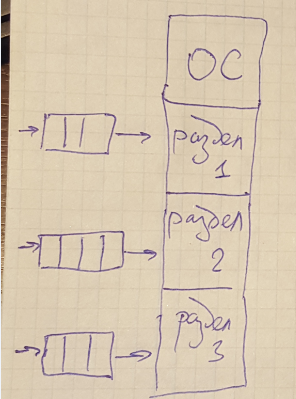 ОС
раздел
1
раздел
2
раздел
3